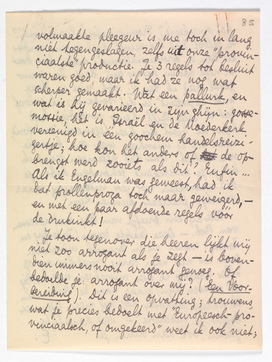 85
volmaakte pleegeur" is me toch in lang
niet tegengeslagen, zelfs uit onze "provin-
ciaalste" productie. Je 3 regels tot besluit
waren goed, maar ik had ze nog wat
scherper gemaakt. Wat een pallurk, en
wat is hij gevarieerd in zijn ghijn: gosse-
mossie, het is Israël en de Moederkerk
vereenigd in een goochem handelsreizi-
gertje; hoe kon het anders of de op-
brengst werd zooiets als dit? Enfin...
Als ik Engelman was geweest, had ik
dat prollenproza toch maar geweigerd,-
en met een paar afdoende regels voor
de drukinkt!
Je toon tegenover die heeren lijkt mij
niet zoo arrogant als je zegt - is boven-
dien immers nooit arrogant genoeg. Of
bedoelde je arrogant over mij? (Een Voor-
bereiding). Dit is een opvatting; trouwens
wat je precies bedoelt met "Europeesch-pro-
vinciaalsch, of omgekeerd" weet ik ook niet;